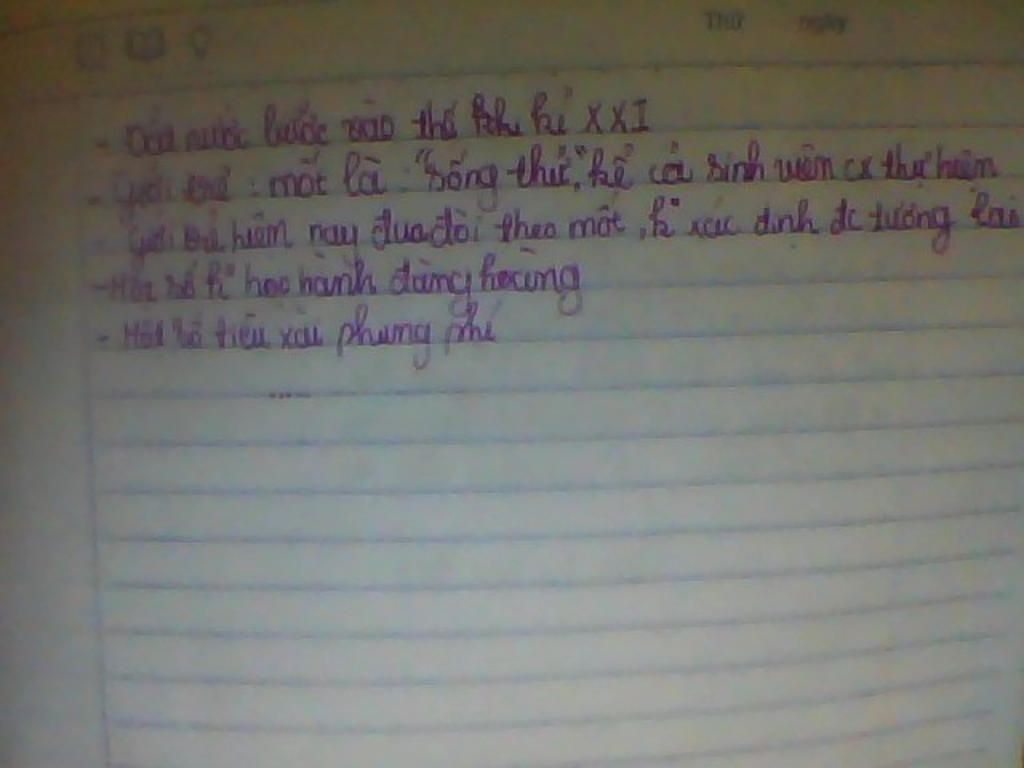 Thứ ngày
- Đất nước bước vào thế kỉ XXI
- Giới trẻ : mốt là "sống thử", kể cả sinh viên cx thực hiện
- Giới trẻ hiện nay đua đòi theo mốt, k° xác định đc tương lai
- Một số k° học hành đàng hoàng
- Một số tiêu xài phung phí
.....